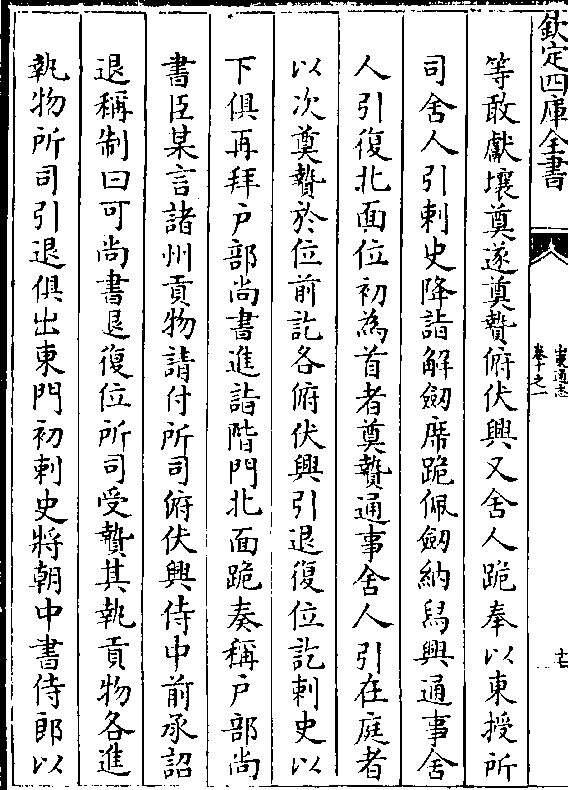 欽定四庫全書
山東通志
卷十一之一
十七
等敢獻壤奠遂奠贄俯伏興又舍人跪奉以東授所
司舍人引刺史降詣解劔席跪佩劔納舄興通事舍
人引復北面位初為首者奠贄通事舍人引在庭者
以次奠贄於位前訖各俯伏興引退復位訖刺史以
下俱再拜户部尚書進詣階門北面跪奏稱户部尚
書臣某言諸州貢物請付所司俯伏興侍中前承詔
退稱制曰可尚書退復位所司受贄其執貢物各進
執物所司引退俱出東門初刺史將朝中書侍郎以